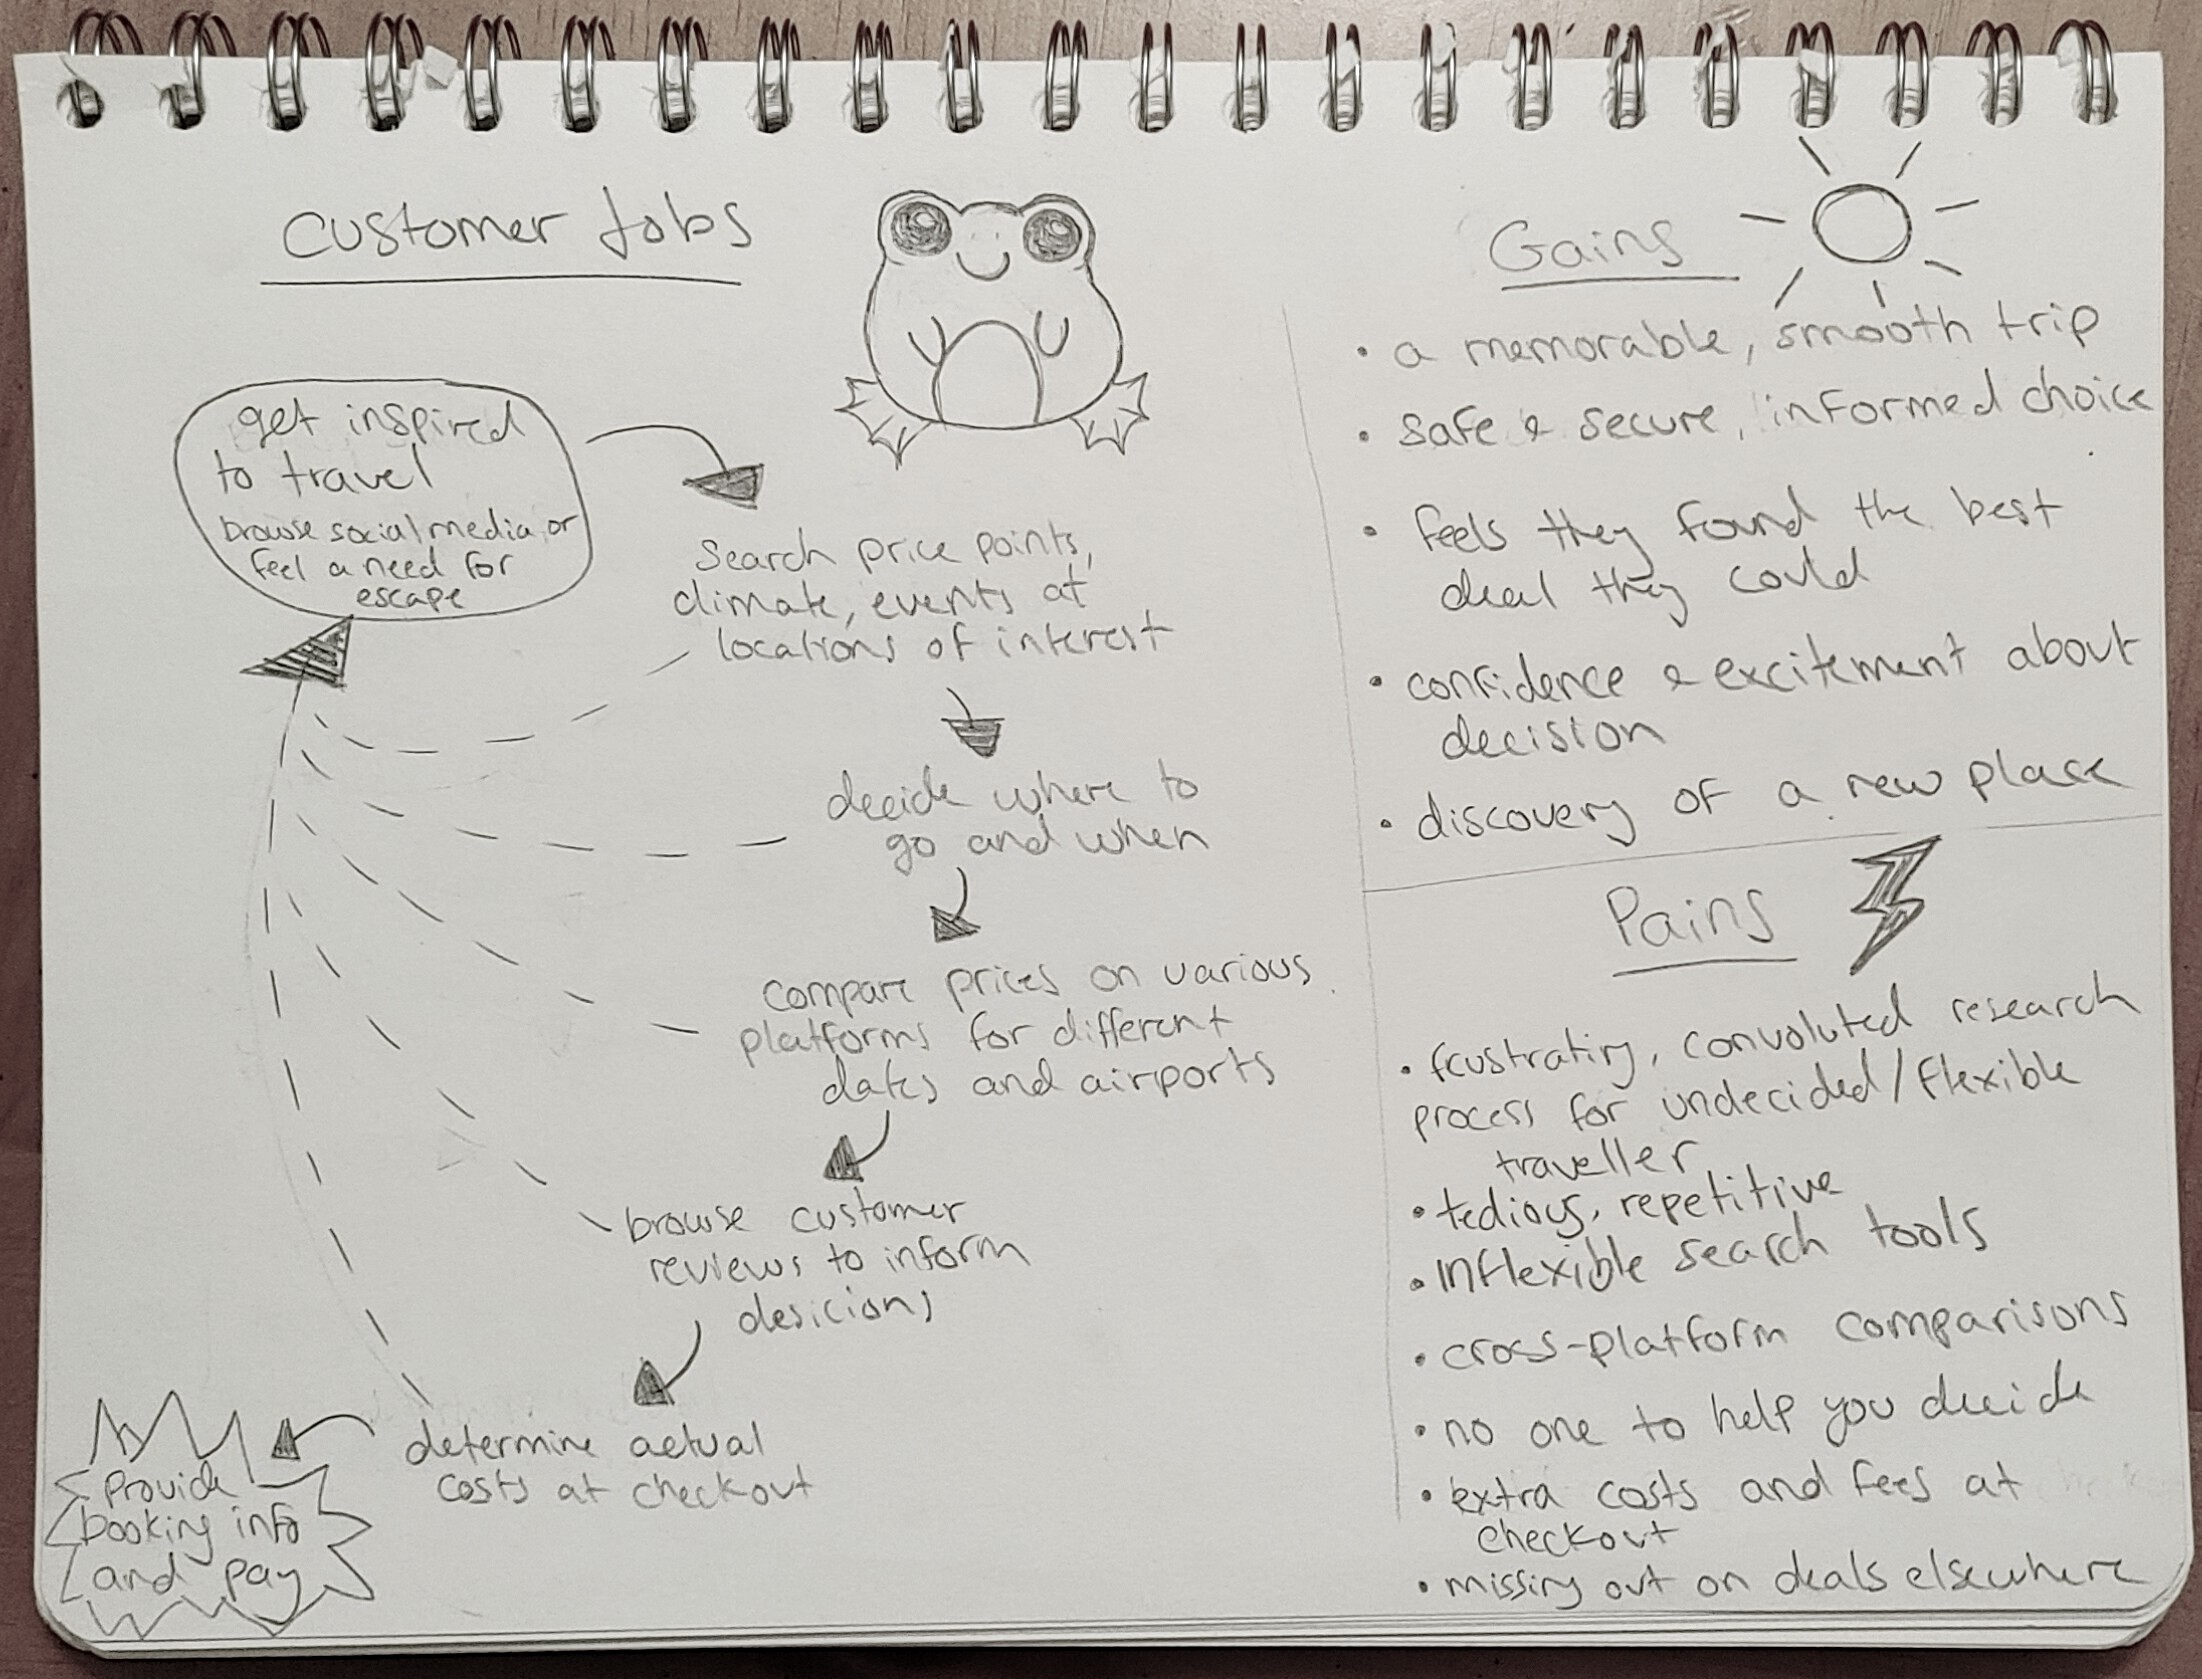 Customer Jobs
get inspired
to travel
browse social media or
feel a need for
escape
search price points,
climate, events at
locations of interest
decide where to
go and when
compare prices on various
platforms for different
dates and airports
browse customer
reviews to inform
desicions
determine actual
costs at checkout
provide
booking info
and pay
Gains
• a memorable, smooth trip
• safe & secure, informed choice
• feels they found the best
deal they could
• confidence & excitement about
decision
• discovery of a new place
Pains
• frustrating, convoluted research
process for undecided/flexible
traveller
• tedious, repetitive
• inflexible search tools
• cross-platform comparisons
• no one to help you decide
• extra costs and fees at
checkout
• missing out on deals elsewhere